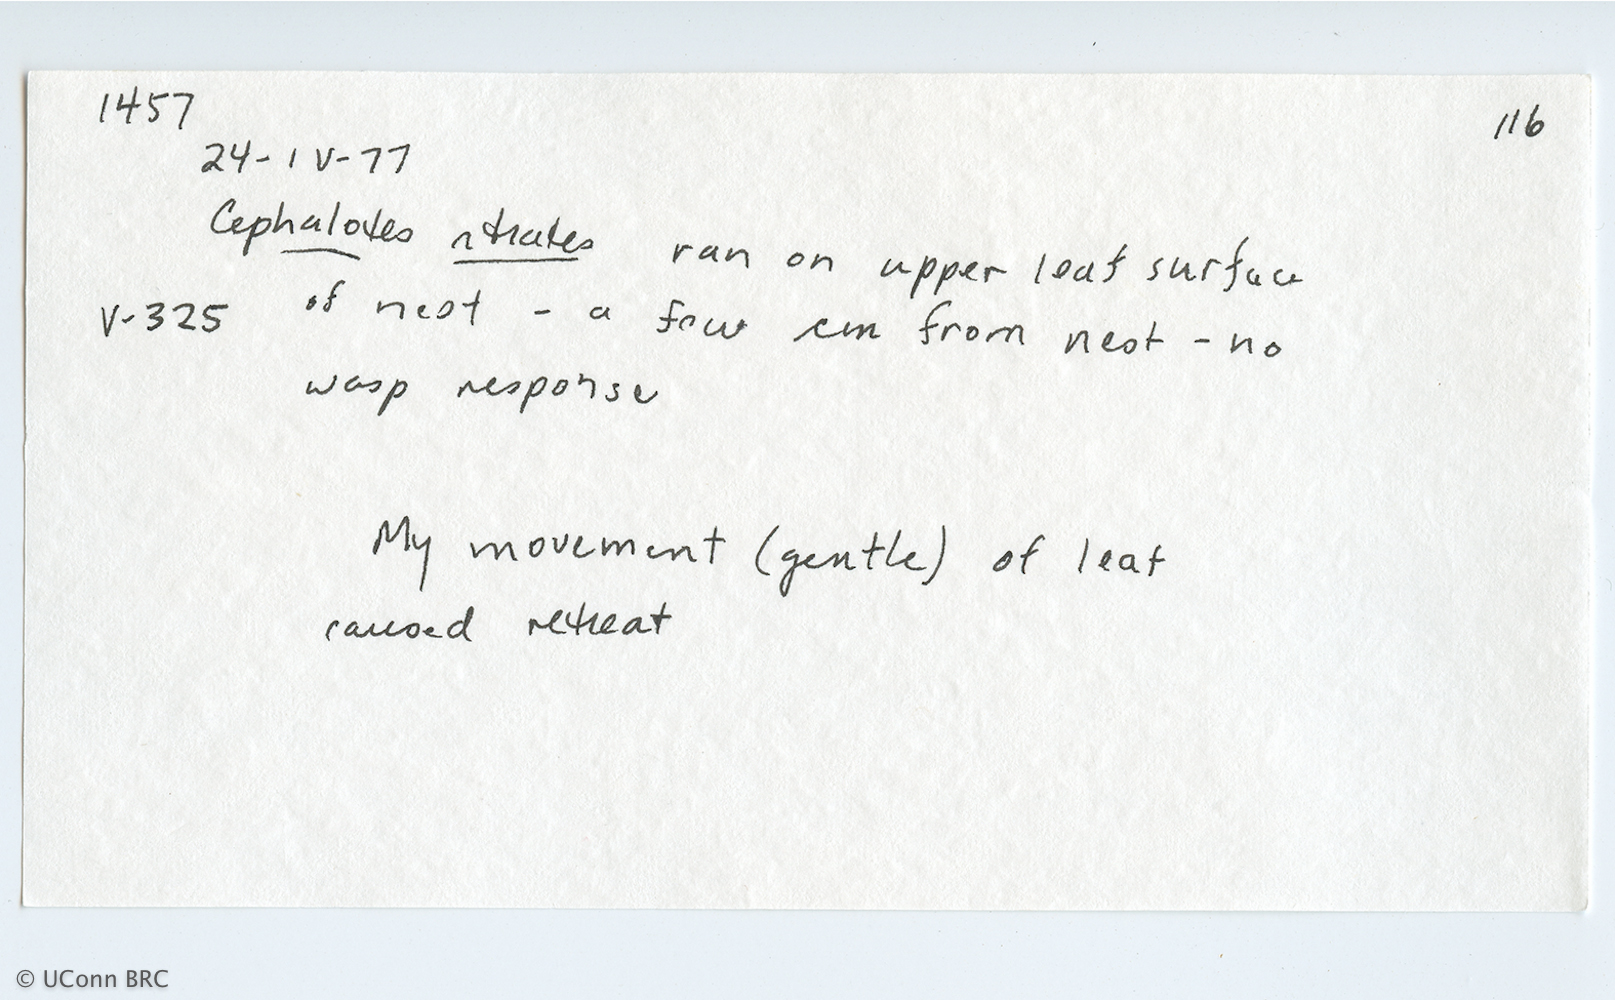 1457
116
24-IV-77
Cephalotes atrates ran on upper leaf surface
V-325 of nest - a few cm from nest - no
wasp response
My movement (gentle) of leaf
caused retreat
© UConn BRC